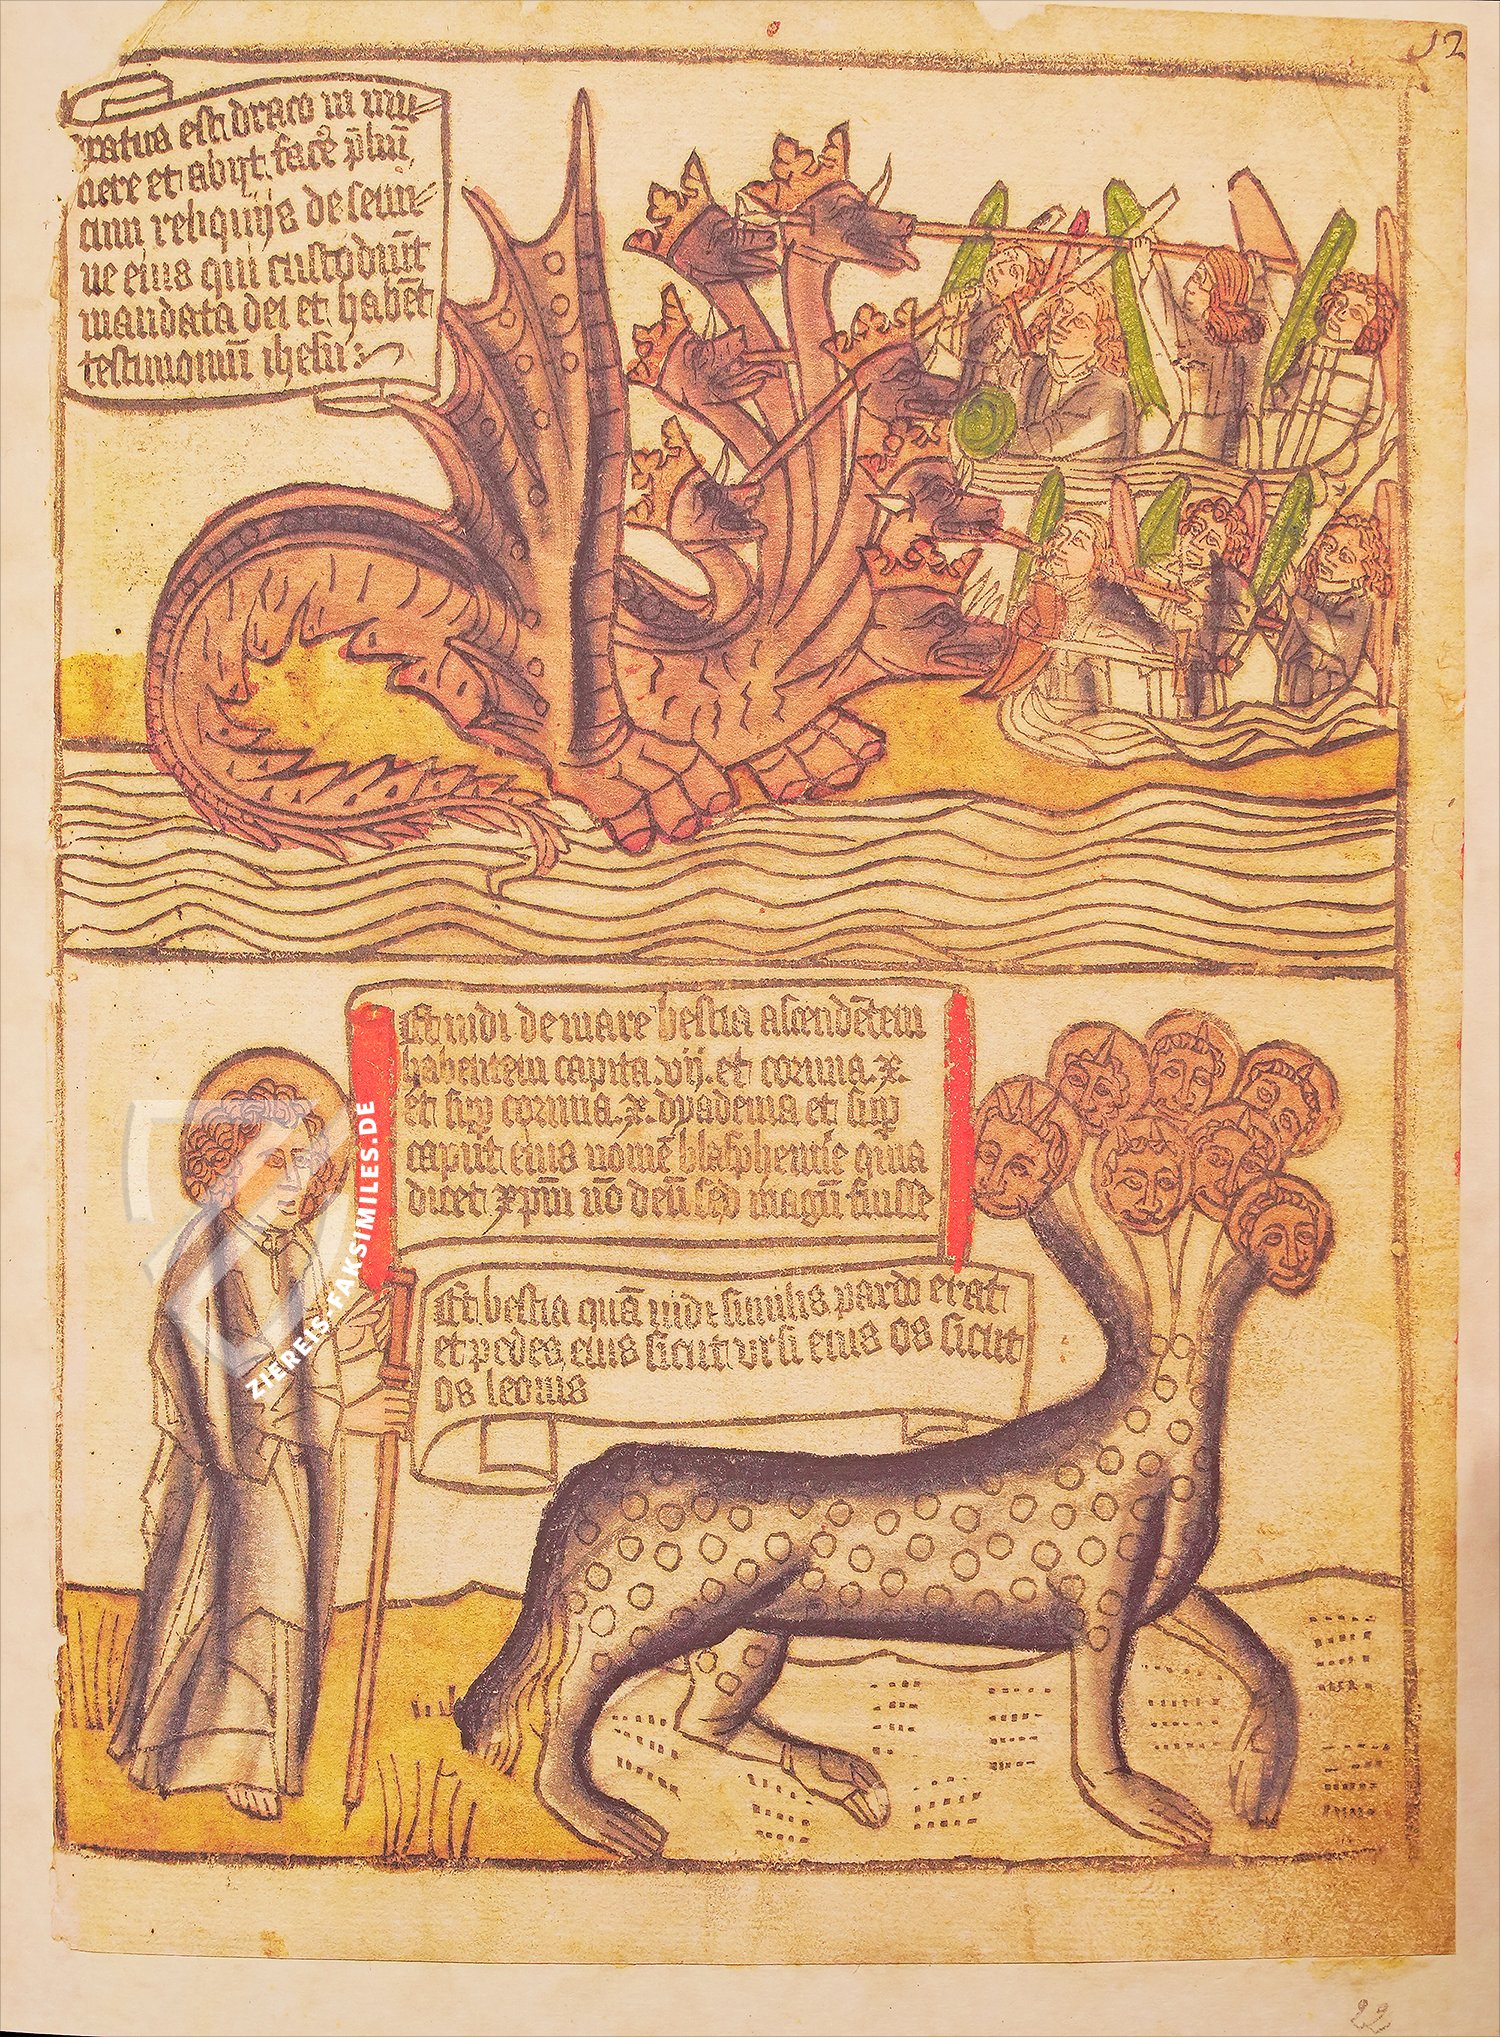 12
Iratus est draco in mu
liere et abijt facē p̄liū
cum reliquijs de semi
ne eius qui custodiūt
mandata dei et habēt
testimoniū ihesu:
Et uidi de mare bestia ascendētem
habentem capita .vij. et cornua .x.
et sup cornua .x. dyadema et sup
caput eius nomē blasphemie quia
dicet xp̄m nō deū sed magū fuisse
Et bestia quā uidi similis pardo erat
et pedes eius sicut ursi eius os sicut
os leonis
ZIEREIS-FAKSIMILES.DE
22